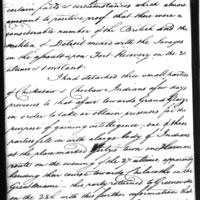 certain facts & circumstances which almost
amount to positive proof that there were a
considerable number of the British and the
militia of Detroit mixed with the Savages
in the assault upon Fort Recovery on the 30
ultimo & constant.
I had detached three small parties
of Chickasaw & Choctaw Indians a few days
previous to that affair towards Grand Glaize
in order to take or obtain prisoners for the
purpose of gaining intelligence, one of these
parties fell in with a large body of Indians
at the place marked Girty's Town on Harmar's
route on the evening of the 27th ultimo, apparently
bending their course towards Chilacothe on the
Great Miami. this party returned to Greenville
on the 28th with this further information that